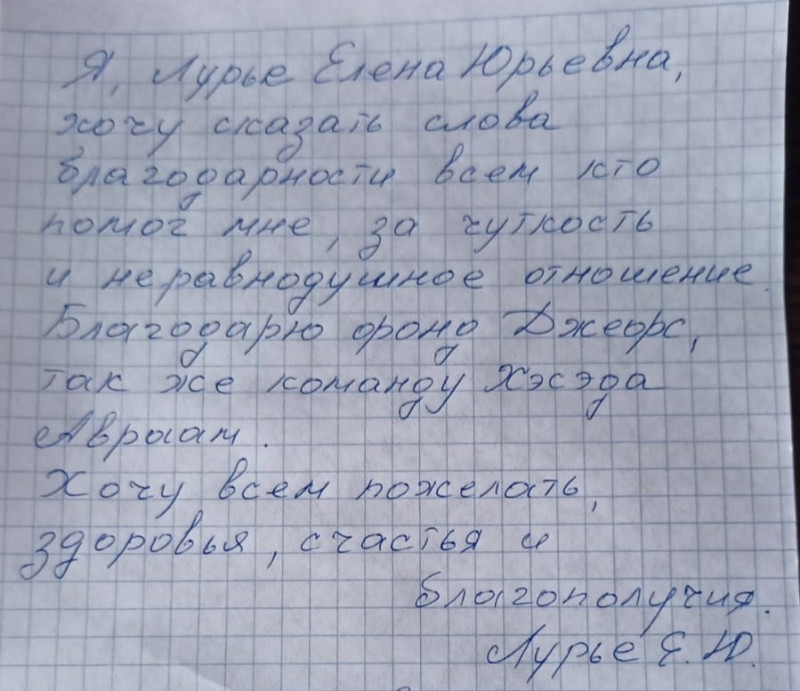 Я, Лурье Елена Юрьевна,
хочу сказать слова
благодарности всем кто
помог мне, за чуткость
и неравнодушное отношение.
Благодарю фонд Джеорс,
так же команду Хэсэда
Авраам.
Хочу всем пожелать,
здоровья, счастья и
благополучия.
Лурье Е. Ю.